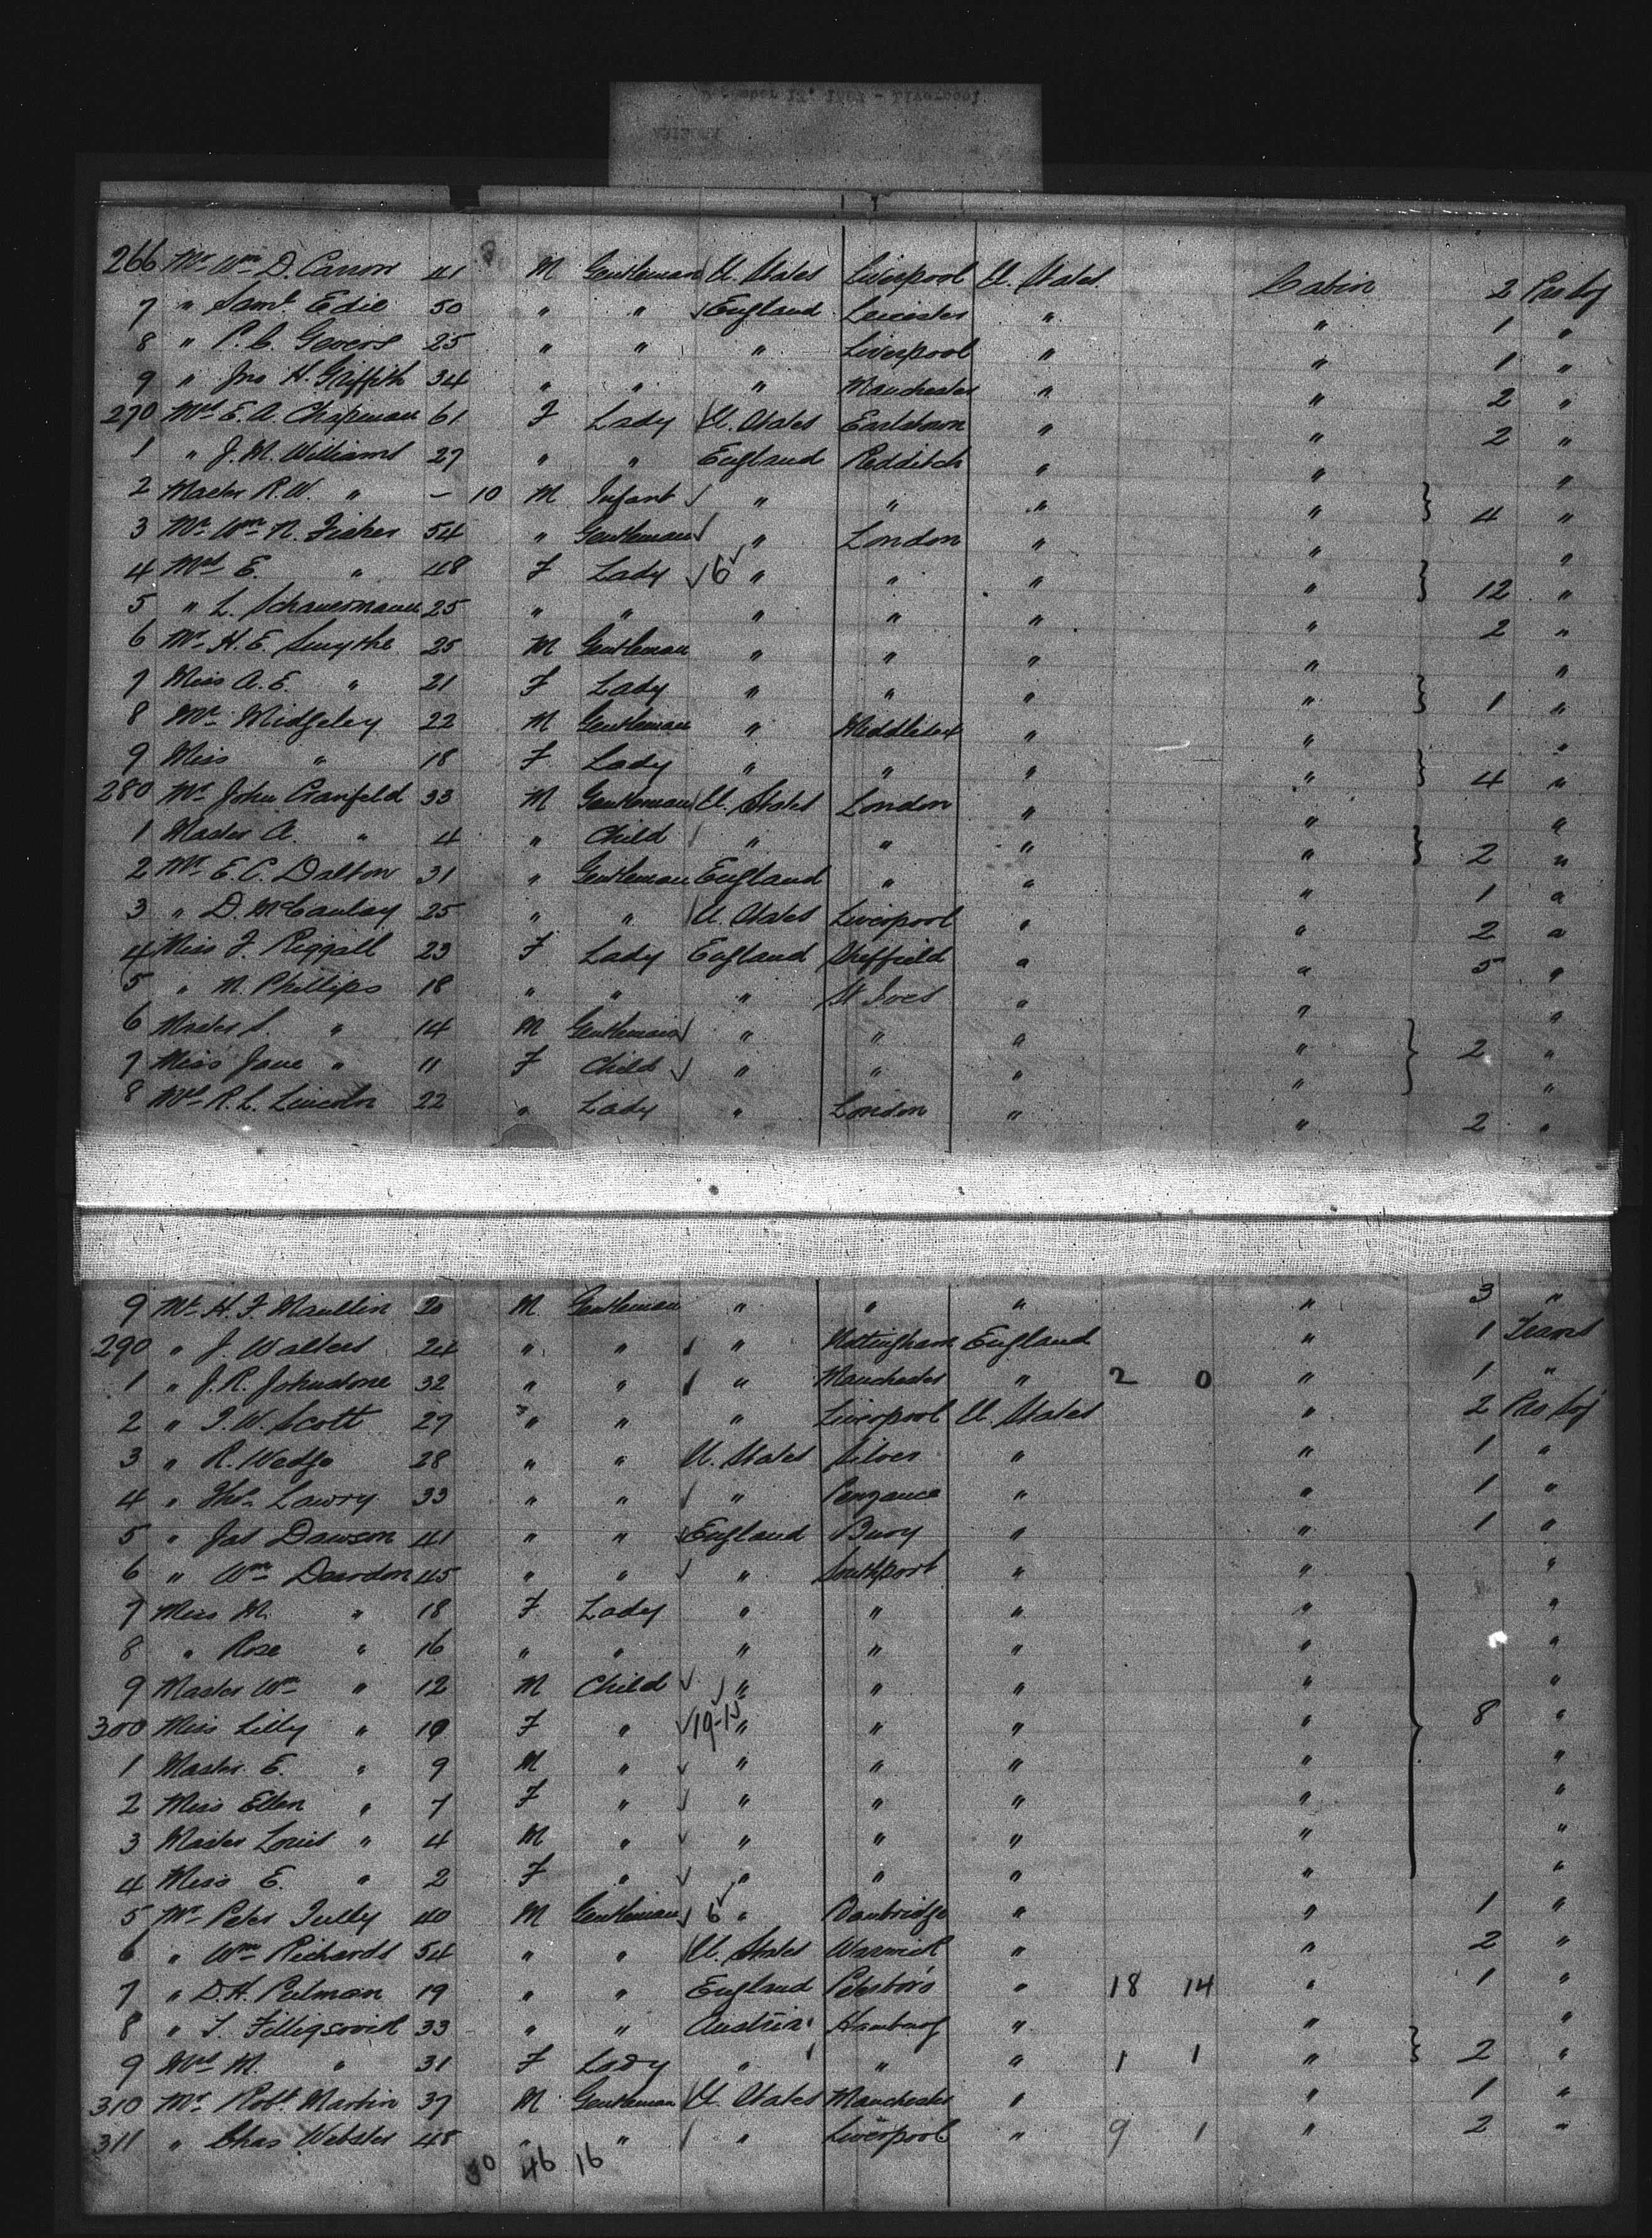 266 Mr Wm D. Carron 41 M Gentleman U. States Liverpool U. States Cabin 2
7 " Saml Edie 50 " " England Leicester " " 1 "
8 " P. C. Gevers 25 " " " Liverpool " " 1 "
9 " Jno H. Griffith 34 " " " Manchester " " 2 "
270 Mrs E. A. Chapman 61 F Lady U. States Earlstown " " 2 "
1 " J. M. Williams 27 " " England Redditch " " "
2 Master R. W. " – 10 M Infant " " " " } 4 "
3 Mr Wm N. Fisher 54 " Gentleman " London " " "
4 Mrs E. " 48 F Lady 6 " " " " } 12 "
5 " L. Schauermann 25 " " " " " " 2 "
6 Mr H. E. Smythe 25 M Gentleman " " " " "
7 Miss A. E. " 21 F Lady " " " " } 1 "
8 Mr Midgeley 22 M Gentleman " Middlesex " " "
9 Miss " 18 F Lady " " " " } 4 "
280 Mr John Cranfeld 33 M Gentleman U. States London " " "
1 Master A. " 4 " Child " " " " } 2 "
2 Mr E. C. Dalton 31 " Gentleman England " " " 1 "
3 " D. McCaulay 25 " " U. States Liverpool " " 2 "
4 Miss F. Riggall 23 F Lady England Sheffield " " 5 "
5 " M. Phillips 18 " " " St Ives " " "
6 Master S. " 14 M Gentleman " " " " } 2 "
7 Miss Jane " 11 F Child " " " " "
8 Mrs R. L. Lincoln 22 " Lady " London " " 2 "
9 Mr H. F. Maullin 20 M Gentleman " " " " 3 "
290 " J. Walters 24 " " " Nottingham England " 1 Trans
1 " J. R. Johnstone 32 " " " Manchester " 2 0 " 1 "
2 " J. W. Scott 27 " " " Liverpool U. States " 2
3 " R. Wedge 28 " " U. States " " 1 "
4 " Thos Lawry 33 " " " Penzance " " 1 "
5 " Jas Dawson 41 " " England Bury " " 1 "
6 " Wm Dearden 45 " " " Southport " " "
7 Miss M. " 18 F Lady " " " " "
8 " Rose " 16 " " " " " " "
9 Master Wm " 12 M Child " " " " "
300 Miss Lilly " 10 F " 19-15 " " " " } 8 "
1 Master E. " 9 M " " " " " "
2 Miss Ellen " 7 F " " " " " "
3 Master Louis " 4 M " " " " " "
4 Miss E. " 2 F " " " " " "
5 Mr Peter Tully 40 M Gentleman 6 " Banbridge " " 1 "
6 " Wm Richards 54 " " U. States Warwick " " 2 "
7 " D. H. Pulman 19 " " England Peterboro " 18 14 " 1 "
8 " 33 " " Austria Hamburg " " "
9 Mrs M. " 31 F Lady " " " 1 1 " } 2 "
310 Mr Robt Martin 37 M Gentleman U. States Manchester " " 1 "
311 " Chas Webster 48 " " " Liverpool " 9 1 " 2 "
30 46 16